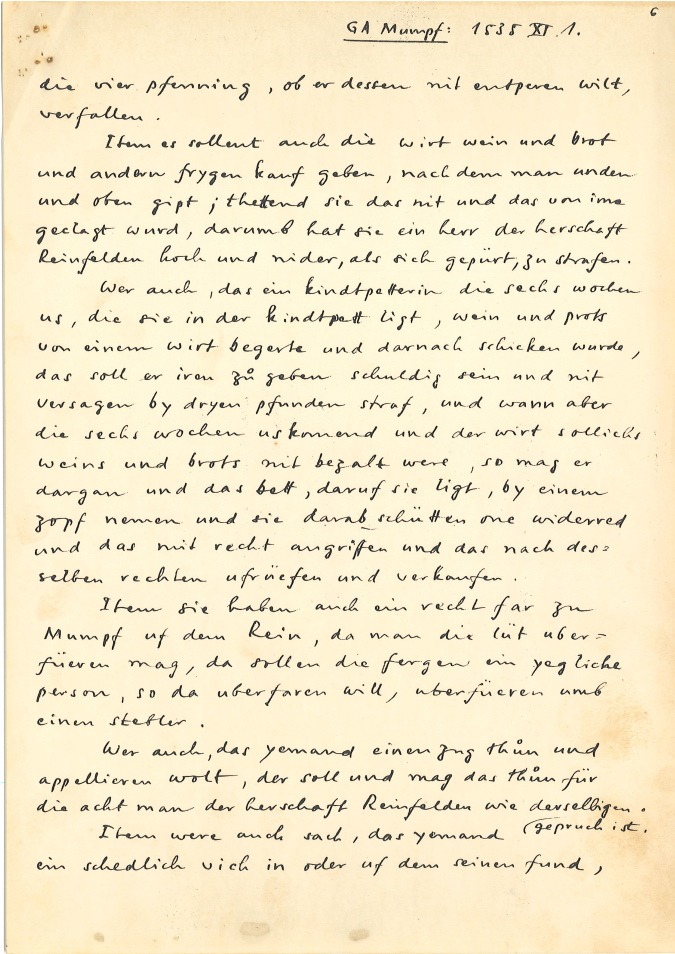 6
GA Mumpf: 1535 XI 1.
die vier pfenning, ob er dessen nit entperen wilt,
verfallen.
Item es sollent auch die wirt wein und brot
und andern frygen kauf geben, nach dem man unden
und oben gipt; thettend sie das nit und das von ime
geclagt wurd, darumb hat sie ein herr der herschaft
Reinfelden hoch und nider, als sich gepürt, zu strafen.
Wer auch, das ein kindtpetterin die sechs wochen
us, die sie in der kindtpett ligt, wein und prots
von einem wirt begerte und darnach schicken wurde,
das soll er iren zů geben schuldig sein und nit
versagen by dryen pfunden straf, und wann aber
die sechs wochen uskomend und der wirt sollichs
weins und brots nit bezalt were, so mag er
dargan und das bett, daruf sie ligt, by einem
zopf nemen und sie darab schütten one widerred
und das mit recht angriffen und das nach des=
selben rechten ufrüefen und verkaufen.
Item sie haben auch ein recht far zu
Mumpf uf dem Rein, da man die lüt uber=
füeren mag, da sollen die fergen ein yegliche
person, so da uberfaren will, uberfüeren umb
einen stebler.
Wer auch, das yemand einen zug thůn und
appellieren wolt, der soll und mag das thůn für
die acht man der herschaft Reinfelden wie derselbigen
gepruch ist.
Item were auch sach, das yemand
ein schedlich vich in oder uf dem seinen fund,